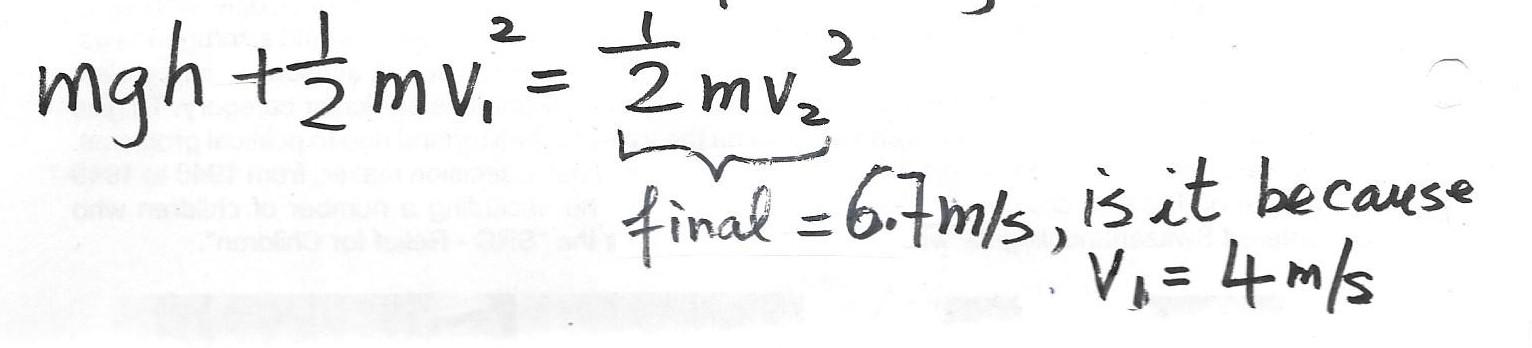 mgh + 1/2 mv₁² = 1/2 mv₂²
final = 6.7m/s, is it because
v₁ = 4 m/s